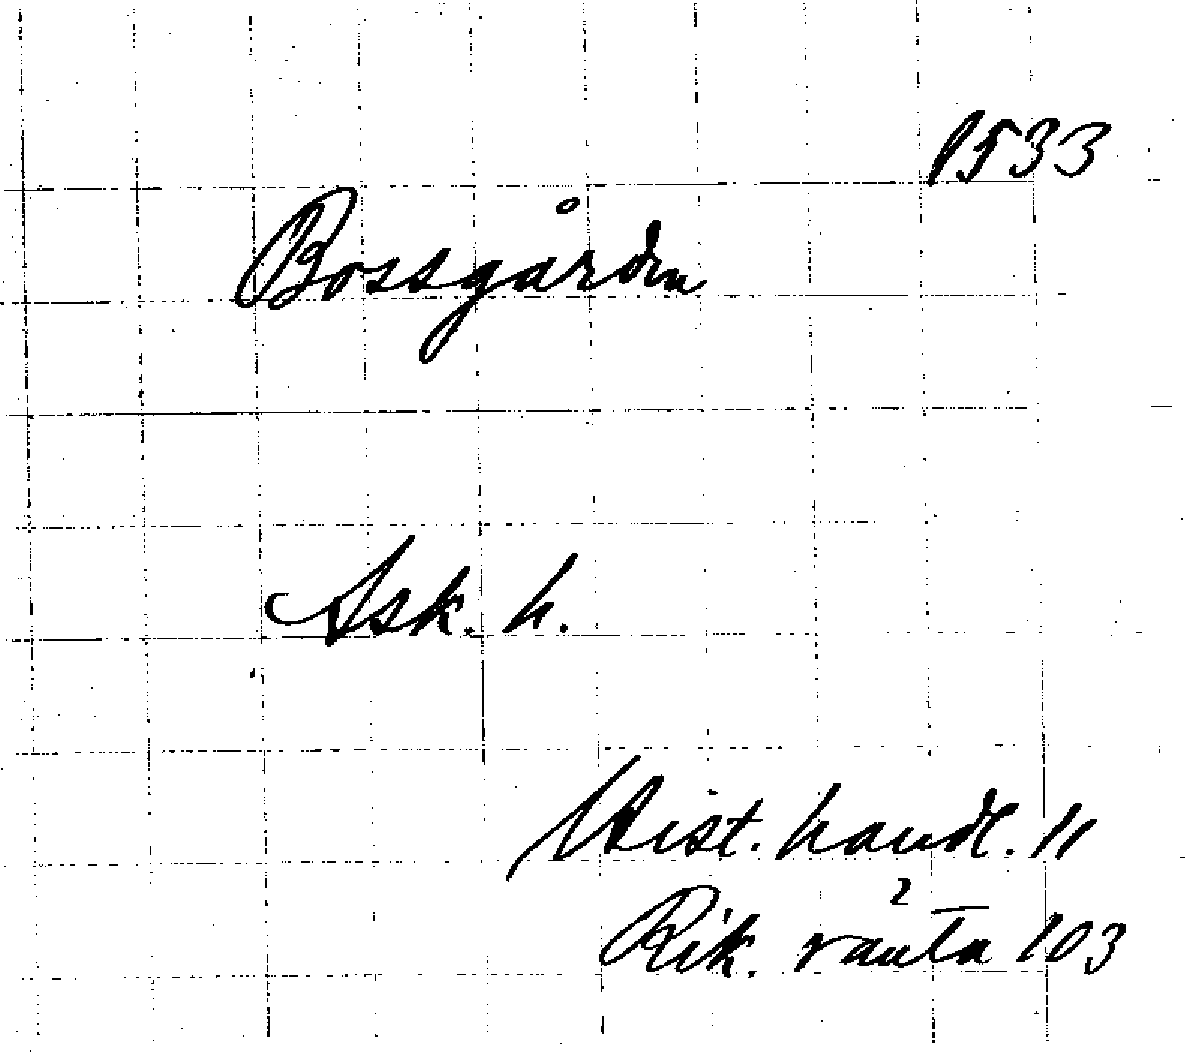 1533
Bossgården
Ask. h.
Hist. handl. 11
Rik. ränta 103